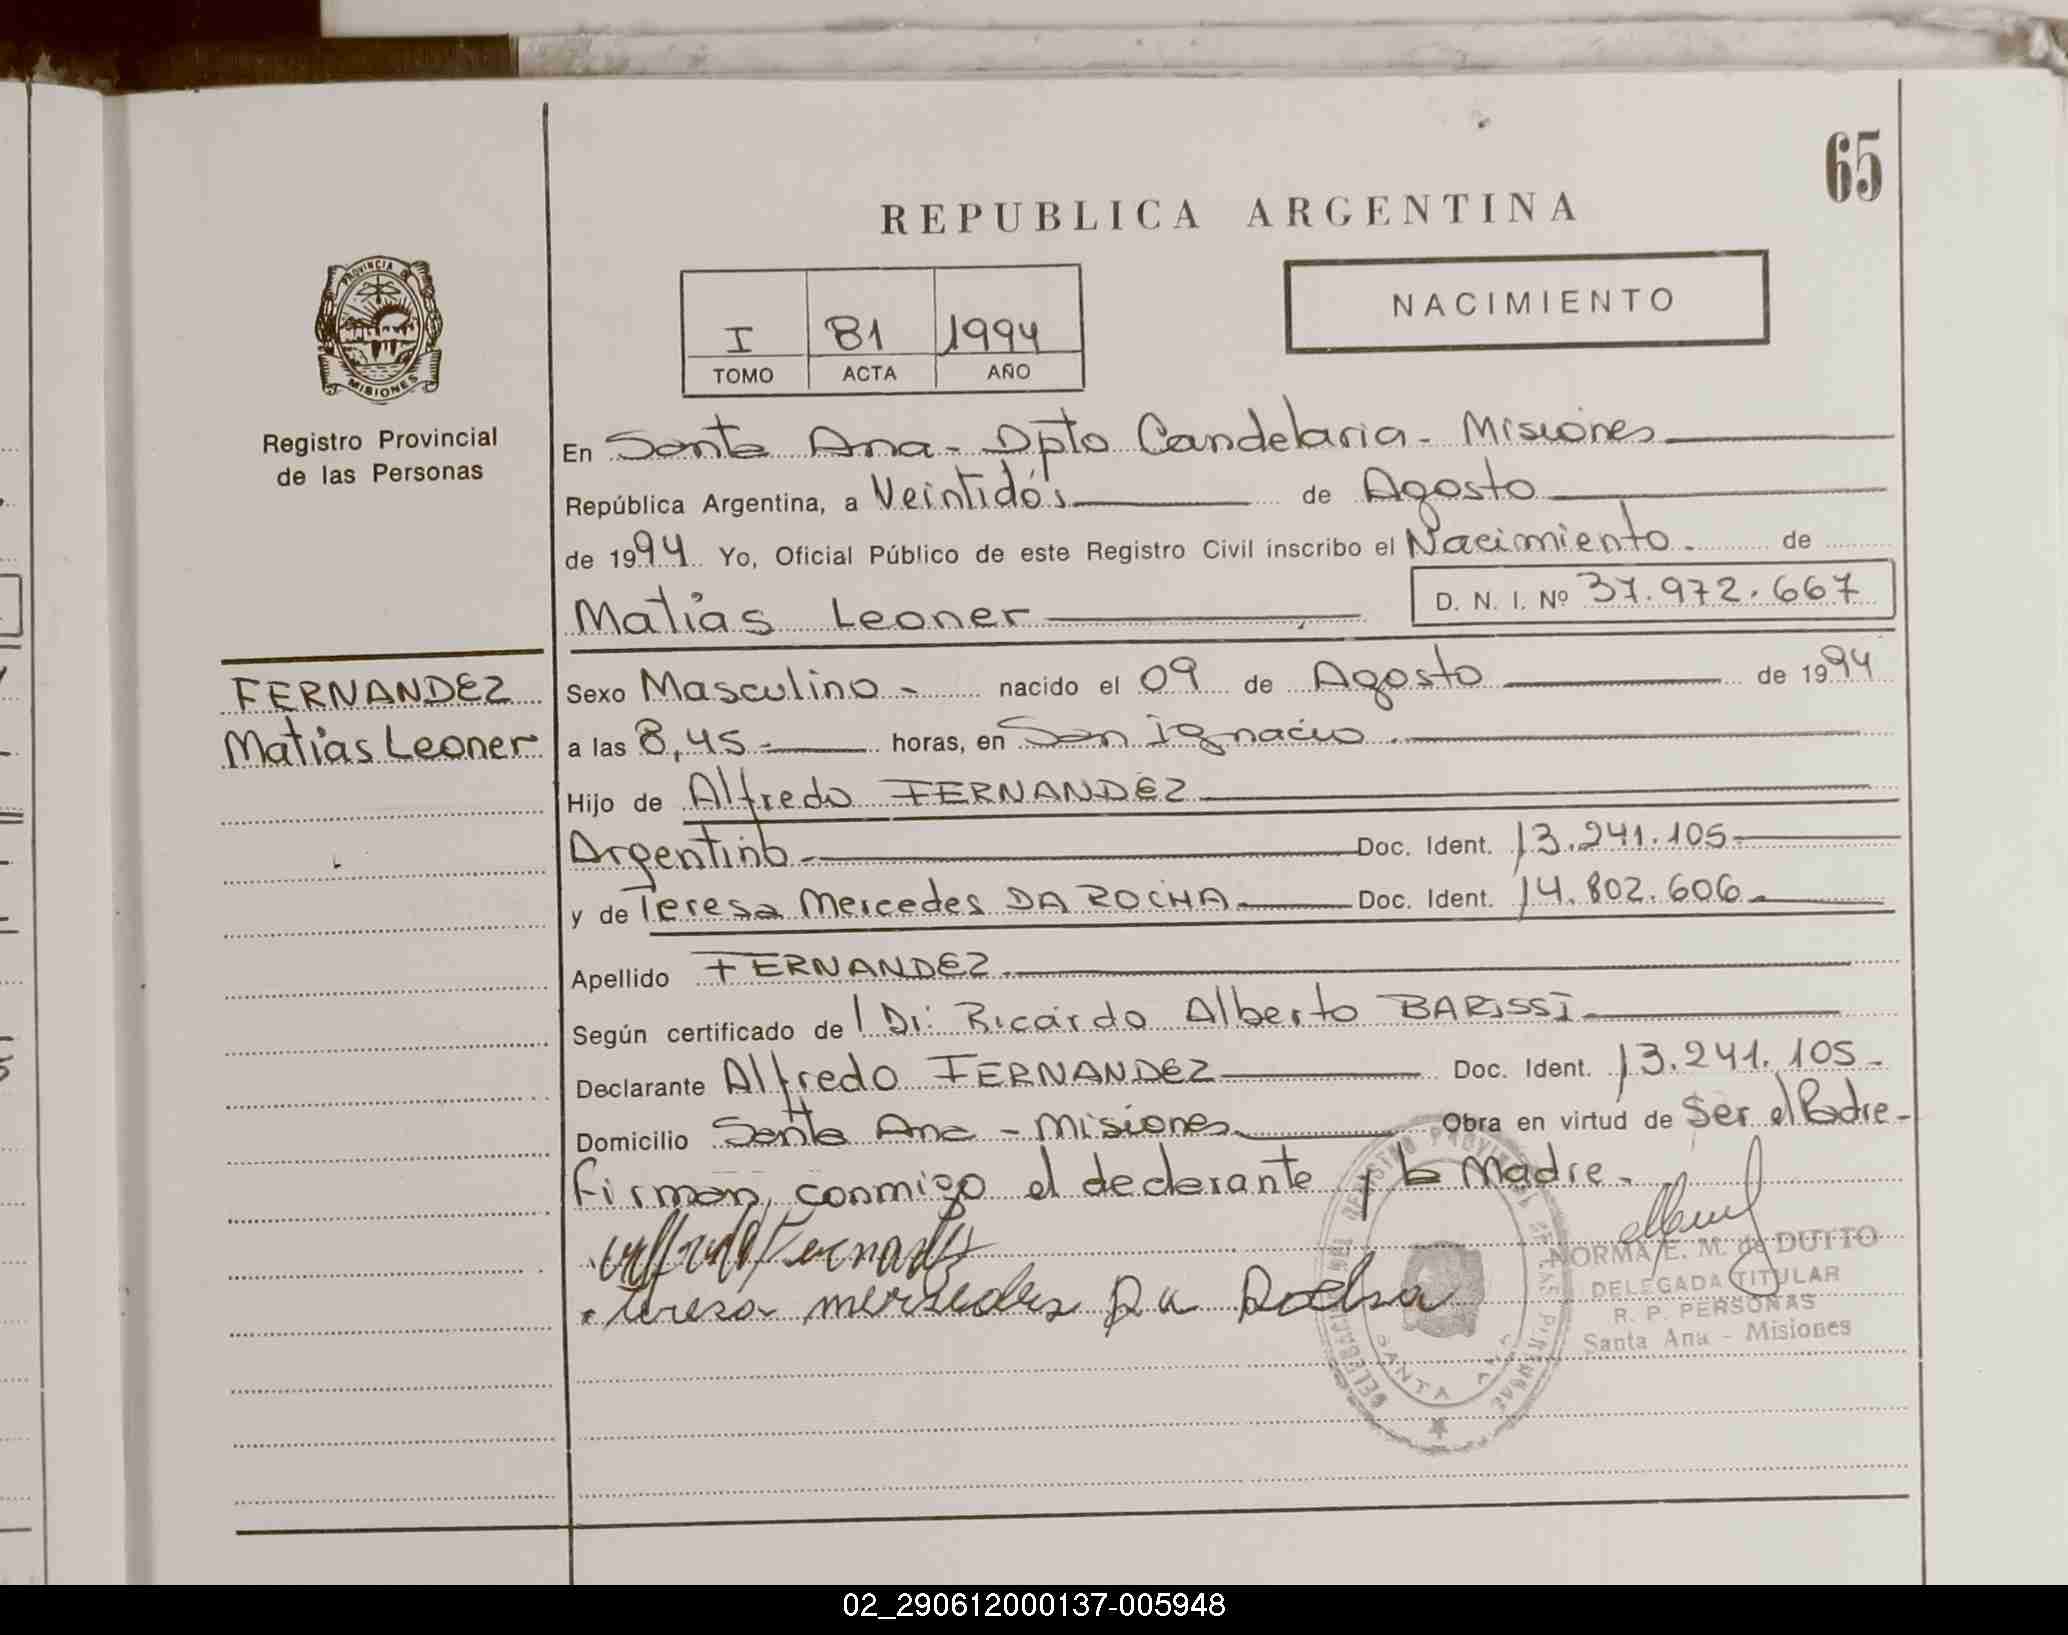 65
REPUBLICA ARGENTINA
PROVINCIA DE
MISIONES
Registro Provincial
de las Personas
NACIMIENTO
I 81 1994
TOMO ACTA AÑO
En Santa Ana - Dpto Candelaria - Misiones
República Argentina, a Veintidós de Agosto
de 1994 Yo, Oficial Público de este Registro Civil inscribo el Nacimiento. de
Matías Leoner D. N. I. Nº 37.972.667
FERNANDEZ
Matías Leoner
Sexo Masculino - nacido el 09 de Agosto de 1994
a las 8,45 - horas, en San Ignacio
Hijo de Alfredo FERNANDEZ
Argentino Doc. Ident. 13.241.105
y de Teresa Mercedes DA ROCHA Doc. Ident. 14.802.606
Apellido FERNANDEZ
Según certificado de / Dr. Ricardo Alberto BARISSI
Declarante Alfredo FERNANDEZ Doc. Ident. 13.241.105
Domicilio Santa Ana - Misiones Obra en virtud de Ser el Padre -
Firman, conmigo el declarante y la Madre -
Teresa mersedes Da Rocha
NORMA E. M. de DUTTO
DELEGADA TITULAR
R. P. PERSONAS
Santa Ana - Misiones
DELEGACION DEL REGISTRO PROVINCIAL DE LAS PERSONAS
SANTA ANA
02_290612000137-005948